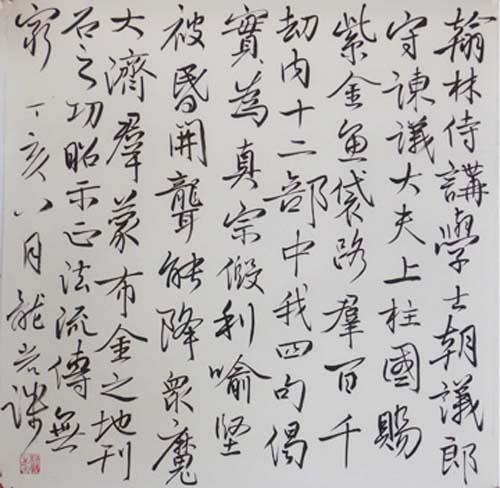 翰林侍講學士朝議郎
守諫議大夫上柱國賜
紫金魚袋路羣百千
劫內十二部中我四句偈
實為真宗假利喻堅
被昏開聾能降眾魔
大濟羣蒙布金之地刊
石之功昭示正法流傳無
窮 丁亥八月龍岩